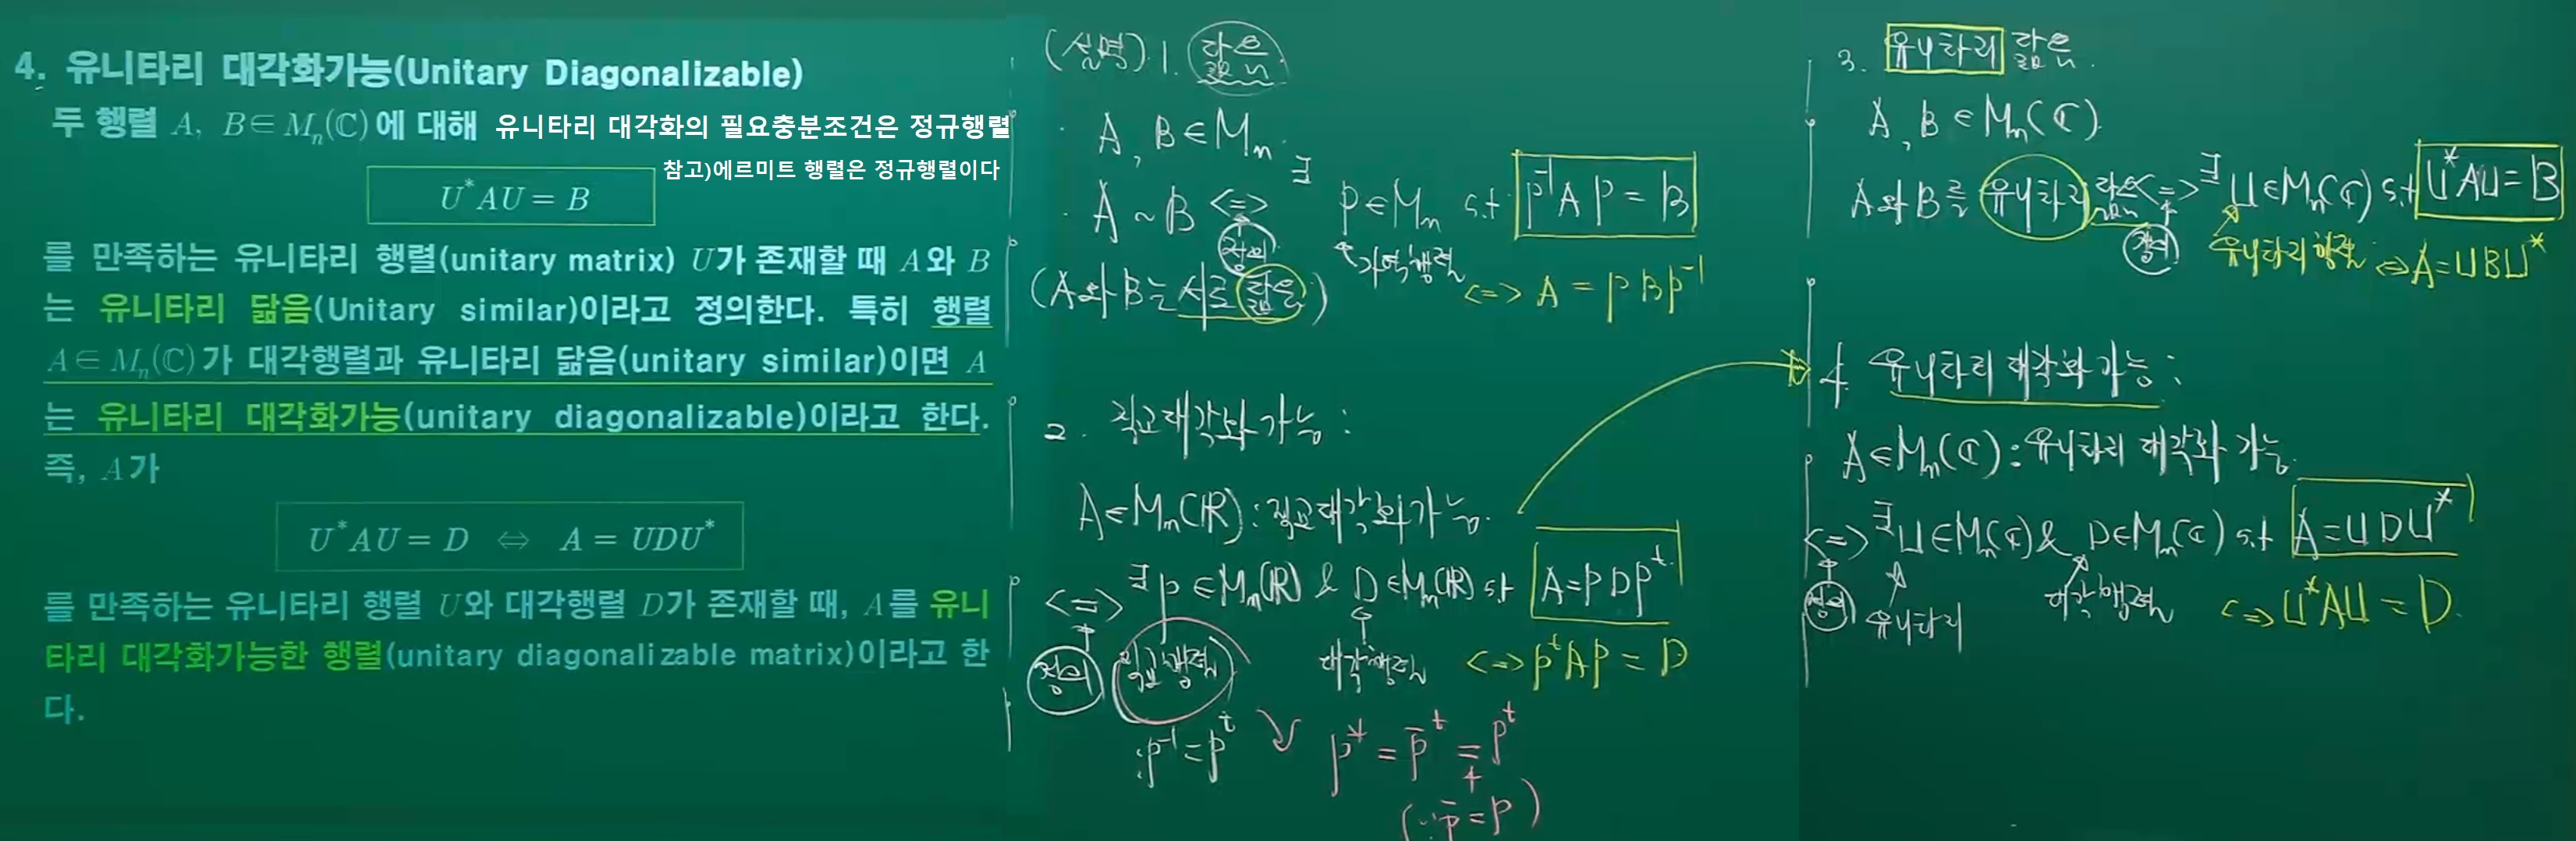 4. 유니타리 대각화가능(Unitary Diagonalizable)
두 행렬 A, B∈M_n(ℂ)에 대해 유니타리 대각화의 필요충분조건은 정규행렬
참고)에르미트 행렬은 정규행렬이다
U*AU = B
를 만족하는 유니타리 행렬(unitary matrix) U가 존재할 때 A와 B
는 유니타리 닮음(Unitary similar)이라고 정의한다. 특히 행렬
A∈M_n(ℂ)가 대각행렬과 유니타리 닮음(unitary similar)이면 A
는 유니타리 대각화가능(unitary diagonalizable)이라고 한다.
즉, A가
U*AU = D ⇔ A = UDU*
를 만족하는 유니타리 행렬 U와 대각행렬 D가 존재할 때, A를 유니
타리 대각화가능한 행렬(unitary diagonalizable matrix)이라고 한
다.
(설명). 1. 닮음
A, B∈M_n
A ~ B <=> ∃ P∈M_n s.t P⁻¹AP = B
정의
가역행렬
(A와 B는 서로 닮음)
<=> A = PBP⁻¹
2. 직교대각화 가능 :
A∈M_n(ℝ) : 직교대각화가능.
<=> ∃P∈M_n(ℝ) & D∈M_n(ℝ) s.t A=PDP^t
정의
직교행렬
대각행렬
<=> P^tAP = D
: P⁻¹=P^t
P* = P̄^t = P^t
(∵ P̄=P)
3. 유니타리 닮음.
A, B∈M_n(ℂ).
A와 B를 유니타리 닮음 <=> ∃U∈M_n(ℂ) s.t U*AU=B
정의
유니타리 행렬
<=> A=UBU*
4. 유니타리 대각화 가능 :
A∈M_n(ℂ) : 유니타리 대각화 가능.
<=> ∃U∈M_n(ℂ) & D∈M_n(ℂ) s.t A=UDU*
정의
유니타리
대각행렬
<=> U*AU = D.